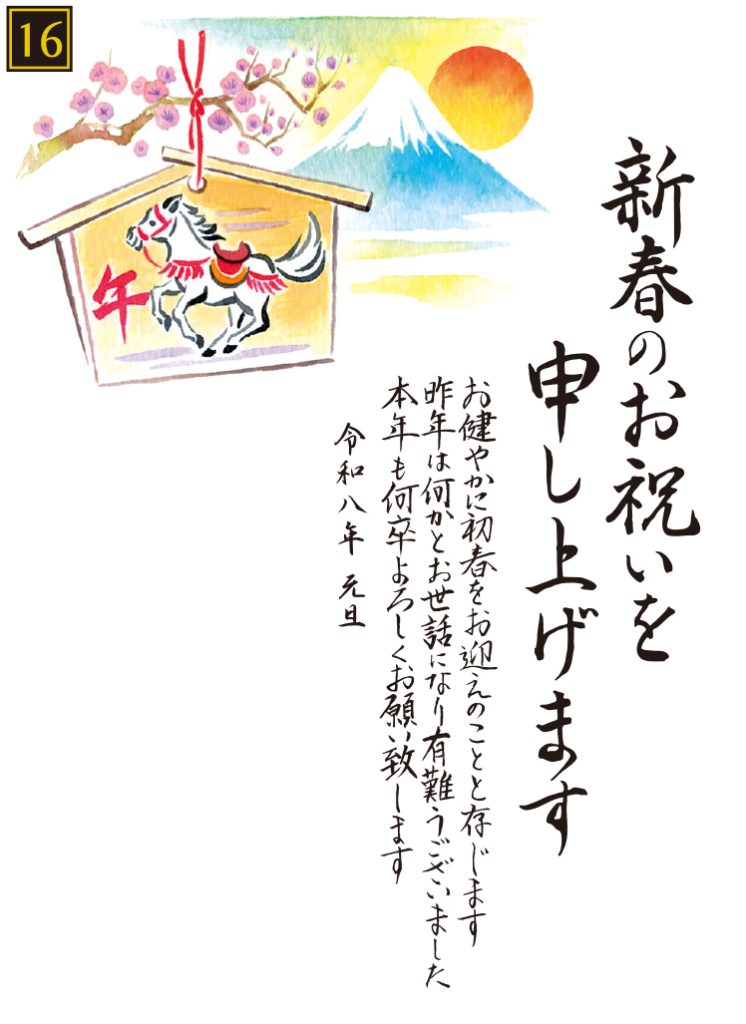 16
午
新春のお祝いを
申し上げます
お健やかに初春をお迎えのことと存じます
昨年は何かとお世話になり有難うございました
本年も何卒よろしくお願い致します
令和八年 元旦